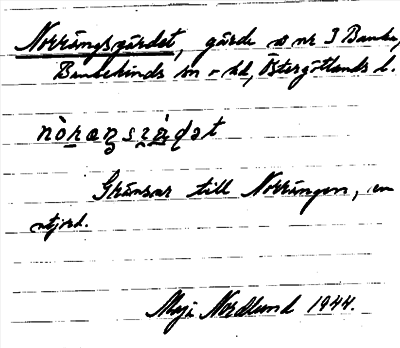 Norrängsgärdet, gärde å nr 3 Banke,
Bankekinds sn o hd, Östergötlands l.
nòraŋsɟàɖət
Gränsar till Norrängen, en
utjord.
Maja Nordlund 1944.